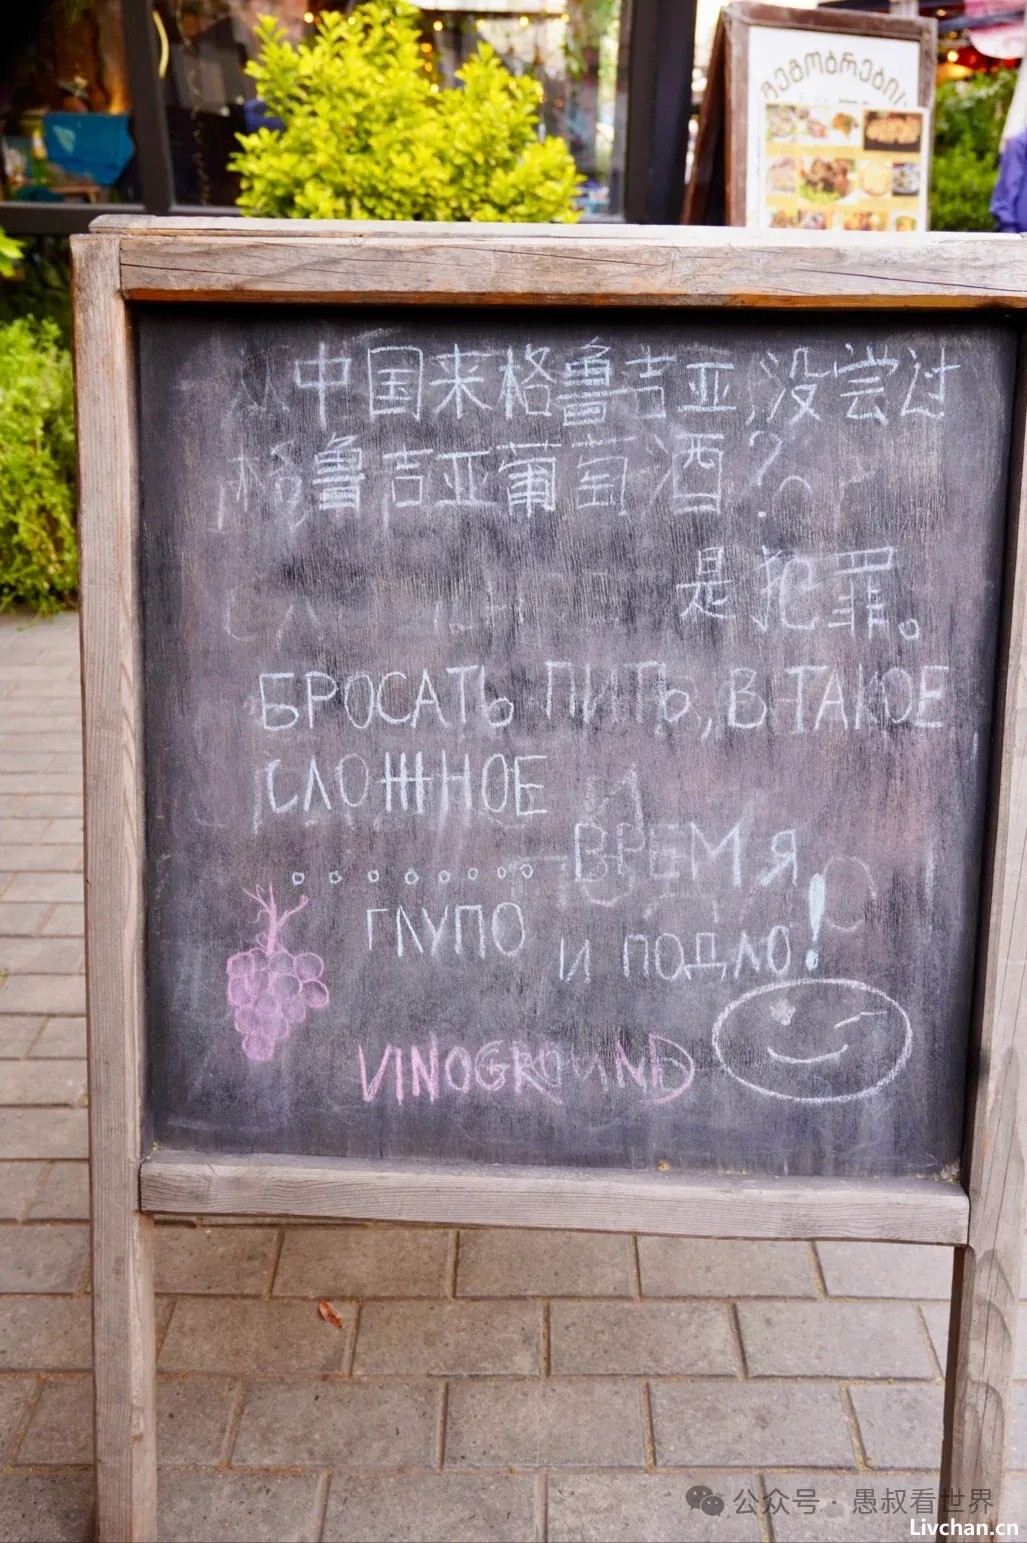 მეგობრების
从中国来格鲁吉亚,没尝过
格鲁吉亚葡萄酒?
是犯罪。
БРОСАТЬ ПИТЬ, В ТАКОЕ
СЛОЖНОЕ
ВРЕМЯ
ГЛУПО И ПОДЛО!
VINOGROUND
公众号 · 愚叔看世界
Livchan.cn